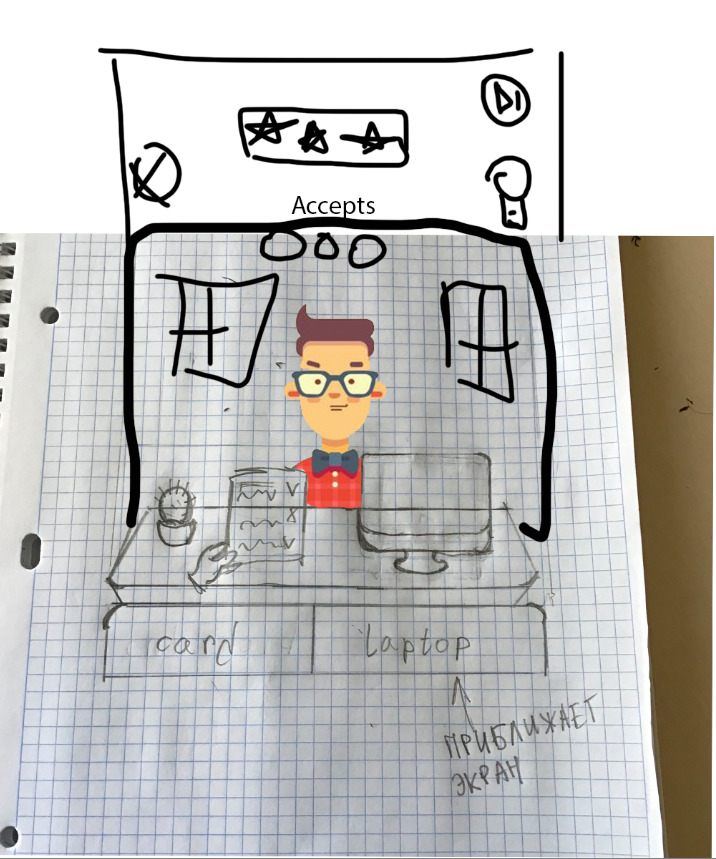 Accepts
card
laptop
ПРИБЛИЖАЕТ
ЭКРАН